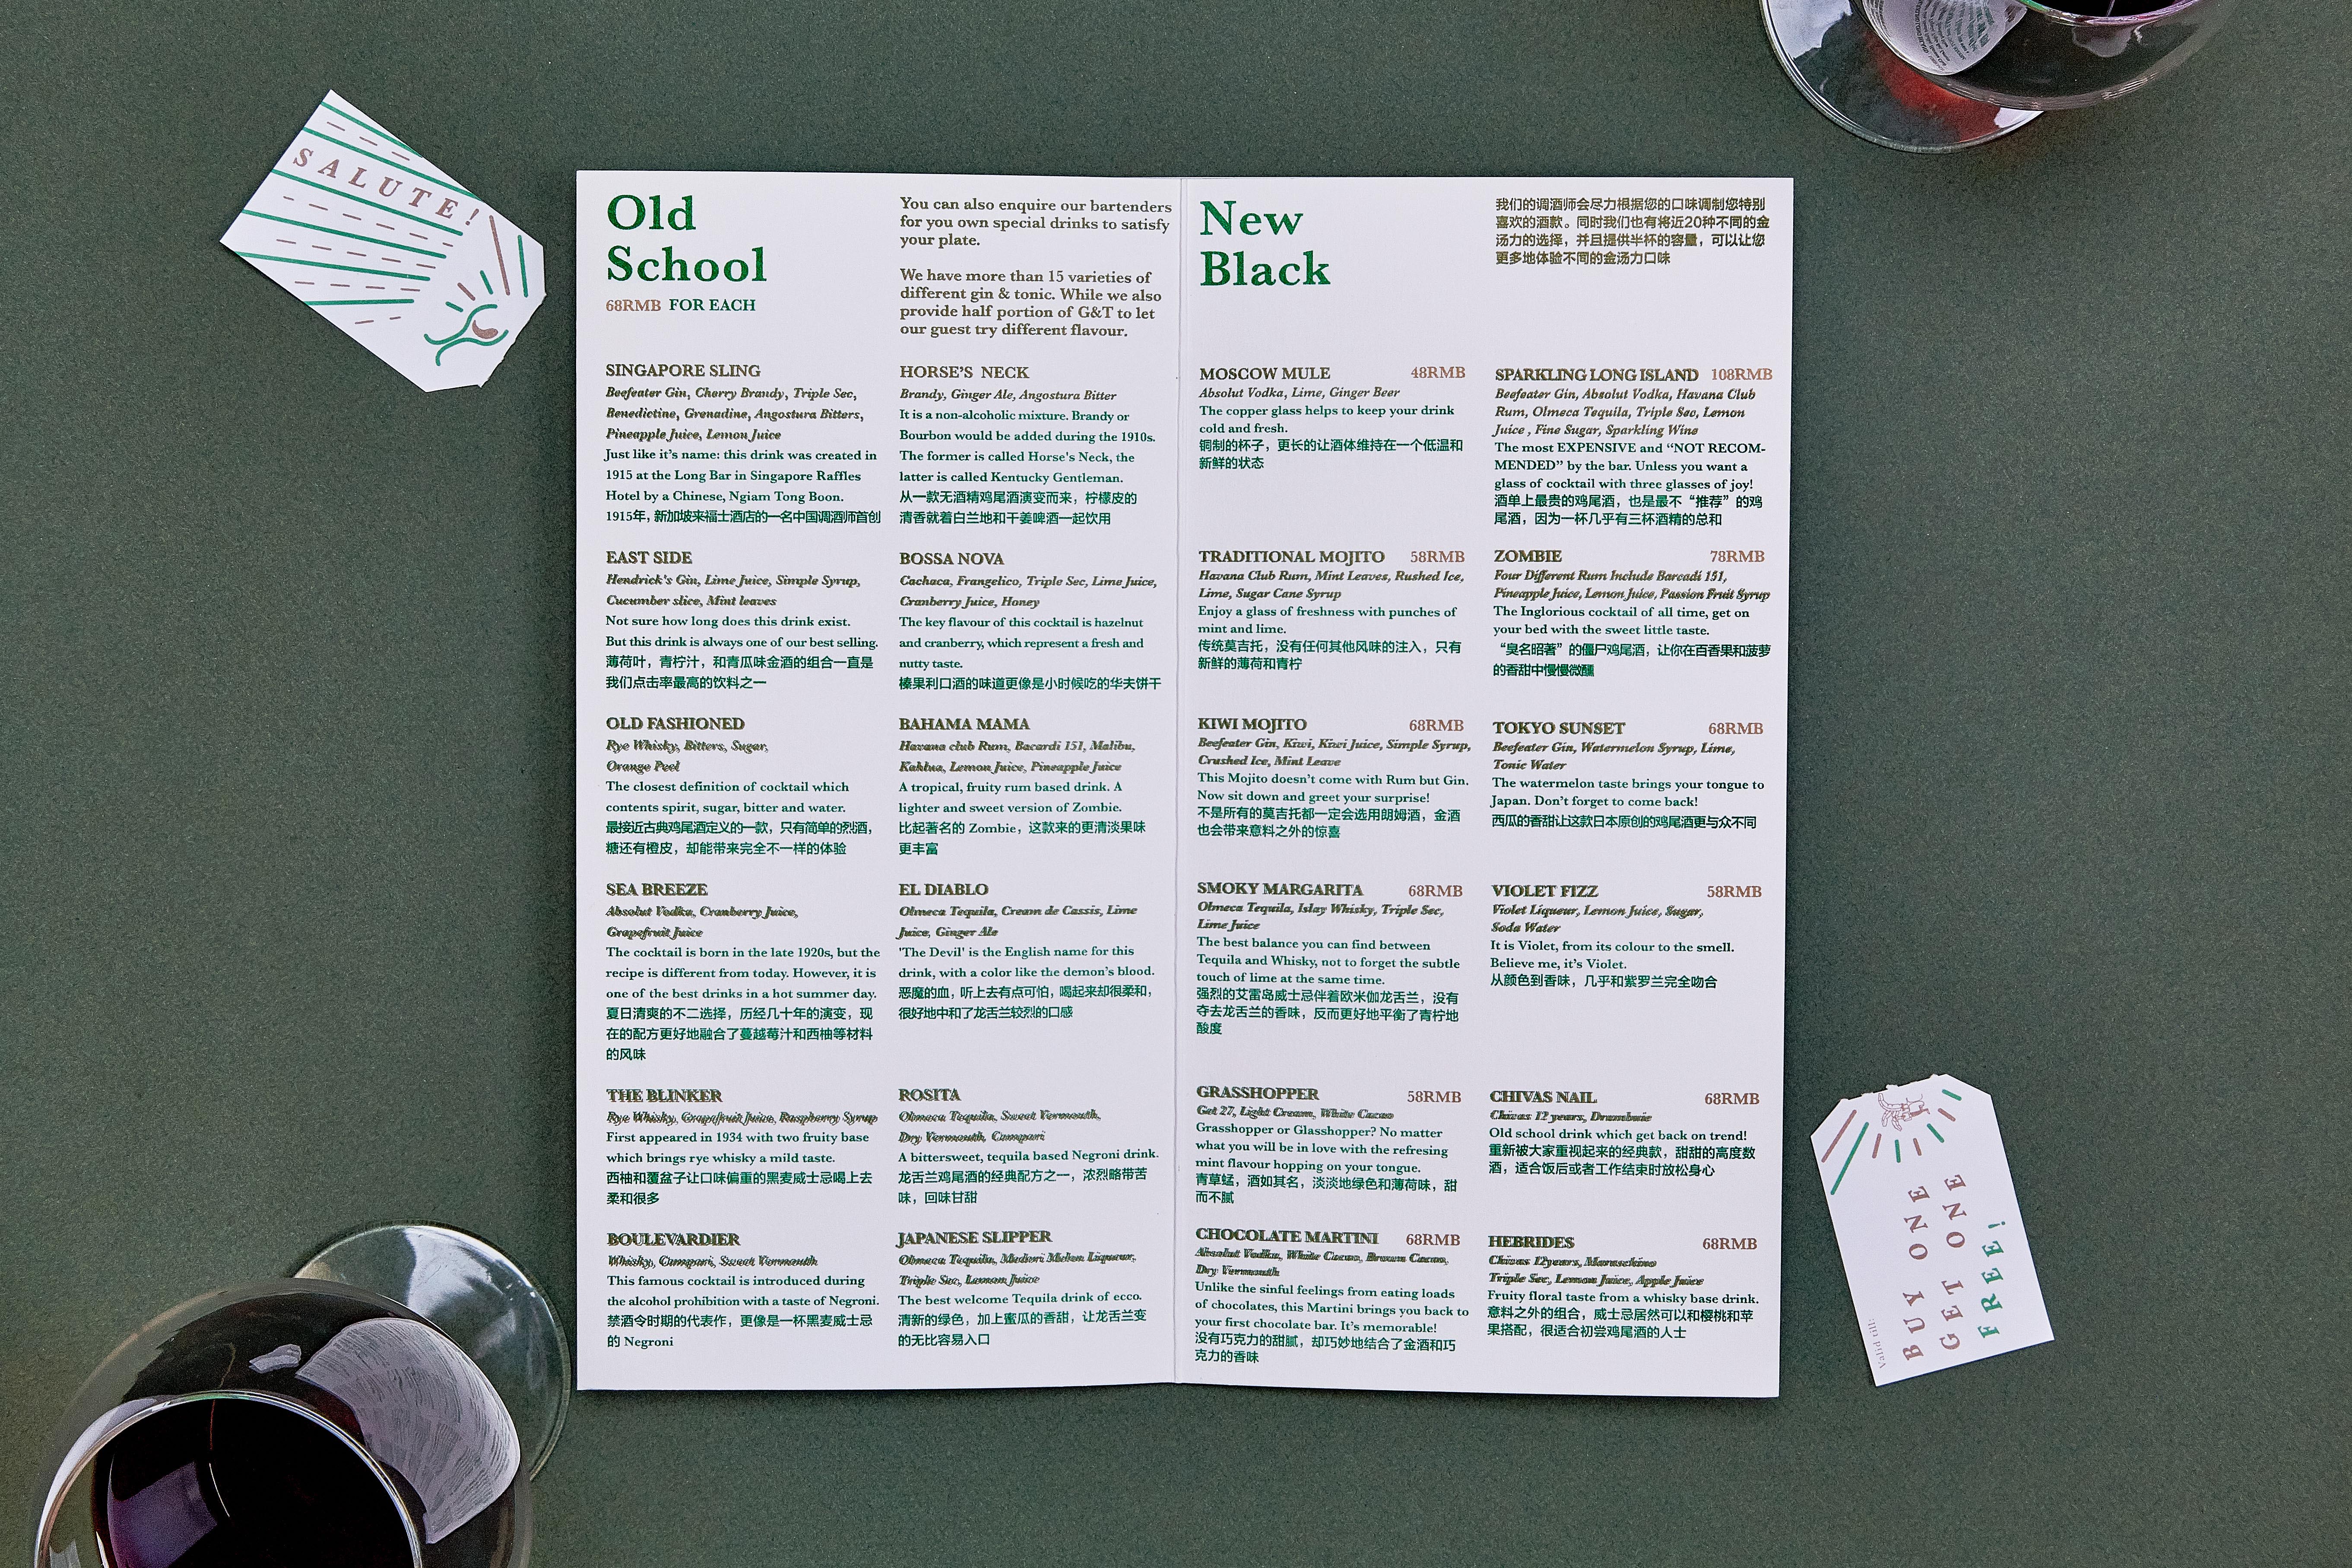 SALUTE!
Old
School
68RMB FOR EACH
You can also enquire our bartenders
for you own special drinks to satisfy
your plate.
We have more than 15 varieties of
different gin & tonic. While we also
provide half portion of G&T to let
our guest try different flavour.
SINGAPORE SLING
Beefeater Gin, Cherry Brandy, Triple Sec,
Benedictine, Grenadine, Angostura Bitters,
Pineapple Juice, Lemon Juice
Just like it's name: this drink was created in
1915 at the Long Bar in Singapore Raffles
Hotel by a Chinese, Ngiam Tong Boon.
1915年, 新加坡来福士酒店的一名中国调酒师首创
EAST SIDE
Hendrick's Gin, Lime Juice, Simple Syrup,
Cucumber slice, Mint leaves
Not sure how long does this drink exist.
But this drink is always one of our best selling.
薄荷叶，青柠汁，和青瓜味金酒的组合一直是
我们点击率最高的饮料之一
OLD FASHIONED
Rye Whisky, Bitters, Sugar,
Orange Peel
The closest definition of cocktail which
contents spirit, sugar, bitter and water.
最接近古典鸡尾酒定义的一款，只有简单的烈酒，
糖还有橙皮，却能带来完全不一样的体验
SEA BREEZE
Absolut Vodka, Cranberry Juice,
Grapefruit Juice
The cocktail is born in the late 1920s, but the
recipe is different from today. However, it is
one of the best drinks in a hot summer day.
夏日清爽的不二选择，历经几十年的演变，现
在的配方更好地融合了蔓越莓汁和西柚等材料
的风味
THE BLINKER
Rye Whisky, Grapefruit Juice, Raspberry Syrup
First appeared in 1934 with two fruity base
which brings rye whisky a mild taste.
西柚和覆盆子让口味偏重的黑麦威士忌喝上去
柔和很多
BOULEVARDIER
Whisky, Campari, Sweet Vermouth
This famous cocktail is introduced during
the alcohol prohibition with a taste of Negroni.
禁酒令时期的代表作，更像是一杯黑麦威士忌
的 Negroni
HORSE'S NECK
Brandy, Ginger Ale, Angostura Bitter
It is a non-alcoholic mixture. Brandy or
Bourbon would be added during the 1910s.
The former is called Horse's Neck, the
latter is called Kentucky Gentleman.
从一款无酒精鸡尾酒演变而来，柠檬皮的
清香就着白兰地和干姜啤酒一起饮用
BOSSA NOVA
Cachaca, Frangelico, Triple Sec, Lime Juice,
Cranberry Juice, Honey
The key flavour of this cocktail is hazelnut
and cranberry, which represent a fresh and
nutty taste.
榛果利口酒的味道更像是小时候吃的华夫饼干
BAHAMA MAMA
Havana club Rum, Bacardi 151, Malibu,
Kahlua, Lemon Juice, Pineapple Juice
A tropical, fruity rum based drink. A
lighter and sweet version of Zombie.
比起著名的 Zombie，这款来的更清淡果味
更丰富
EL DIABLO
Olmeca Tequila, Cream de Cassis, Lime
Juice, Ginger Ale
'The Devil' is the English name for this
drink, with a color like the demon's blood.
恶魔的血，听上去有点可怕，喝起来却很柔和，
很好地中和了龙舌兰较烈的口感
ROSITA
Olmeca Tequila, Sweet Vermouth,
Dry Vermouth, Campari
A bittersweet, tequila based Negroni drink.
龙舌兰鸡尾酒的经典配方之一，浓烈略带苦
味，回味甘甜
JAPANESE SLIPPER
Olmeca Tequila, Medori Melon Liqueur,
Triple Sec, Lemon Juice
The best welcome Tequila drink of ecco.
清新的绿色，加上蜜瓜的香甜，让龙舌兰变
的无比容易入口
New
Black
我们的调酒师会尽力根据您的口味调制您特别
喜欢的酒款。同时我们也有将近20种不同的金
汤力的选择，并且提供半杯的容量，可以让您
更多地体验不同的金汤力口味
MOSCOW MULE 48RMB
Absolut Vodka, Lime, Ginger Beer
The copper glass helps to keep your drink
cold and fresh.
铜制的杯子，更长的让酒体维持在一个低温和
新鲜的状态
TRADITIONAL MOJITO 58RMB
Havana Club Rum, Mint Leaves, Rushed Ice,
Lime, Sugar Cane Syrup
Enjoy a glass of freshness with punches of
mint and lime.
传统莫吉托，没有任何其他风味的注入，只有
新鲜的薄荷和青柠
KIWI MOJITO 68RMB
Beefeater Gin, Kiwi, Kiwi Juice, Simple Syrup,
Crushed Ice, Mint Leave
This Mojito doesn't come with Rum but Gin.
Now sit down and greet your surprise!
不是所有的莫吉托都一定会选用朗姆酒，金酒
也会带来意料之外的惊喜
SMOKY MARGARITA 68RMB
Olmeca Tequila, Islay Whisky, Triple Sec,
Lime Juice
The best balance you can find between
Tequila and Whisky, not to forget the subtle
touch of lime at the same time.
强烈的艾雷岛威士忌伴着欧米伽龙舌兰，没有
夺去龙舌兰的香味，反而更好地平衡了青柠地
酸度
GRASSHOPPER 58RMB
Get 27, Light Cream, White Cacao
Grasshopper or Glasshopper? No matter
what you will be in love with the refresing
mint flavour hopping on your tongue.
青草蜢，酒如其名，淡淡地绿色和薄荷味，甜
而不腻
CHOCOLATE MARTINI 68RMB
Absolut Vodka, White Cacao, Brown Cacao,
Dry Vermouth
Unlike the sinful feelings from eating loads
of chocolates, this Martini brings you back to
your first chocolate bar. It's memorable!
没有巧克力的甜腻，却巧妙地结合了金酒和巧
克力的香味
SPARKLING LONG ISLAND 108RMB
Beefeater Gin, Absolut Vodka, Havana Club
Rum, Olmeca Tequila, Triple Sec, Lemon
Juice , Fine Sugar, Sparkling Wine
The most EXPENSIVE and “NOT RECOM-
MENDED” by the bar. Unless you want a
glass of cocktail with three glasses of joy!
酒单上最贵的鸡尾酒，也是最不“推荐”的鸡
尾酒，因为一杯几乎有三杯酒精的总和
ZOMBIE 78RMB
Four Different Rum Include Barcadi 151,
Pineapple Juice, Lemon Juice, Passion Fruit Syrup
The Inglorious cocktail of all time, get on
your bed with the sweet little taste.
“臭名昭著”的僵尸鸡尾酒，让你在百香果和菠萝
的香甜中慢慢微醺
TOKYO SUNSET 68RMB
Beefeater Gin, Watermelon Syrup, Lime,
Tonic Water
The watermelon taste brings your tongue to
Japan. Don't forget to come back!
西瓜的香甜让这款日本原创的鸡尾酒更与众不同
VIOLET FIZZ 58RMB
Violet Liqueur, Lemon Juice, Sugar,
Soda Water
It is Violet, from its colour to the smell.
Believe me, it's Violet.
从颜色到香味，几乎和紫罗兰完全吻合
CHIVAS NAIL 68RMB
Chivas 12 years, Drambuie
Old school drink which get back on trend!
重新被大家重视起来的经典款，甜甜的高度数
酒，适合饭后或者工作结束时放松身心
HEBRIDES 68RMB
Chivas 12years, Maraschino
Triple Sec, Lemon Juice, Apple Juice
Fruity floral taste from a whisky base drink.
意料之外的组合，威士忌居然可以和樱桃和苹
果搭配，很适合初尝鸡尾酒的人士
BUY ONE
GET ONE
FREE!
Valid till: